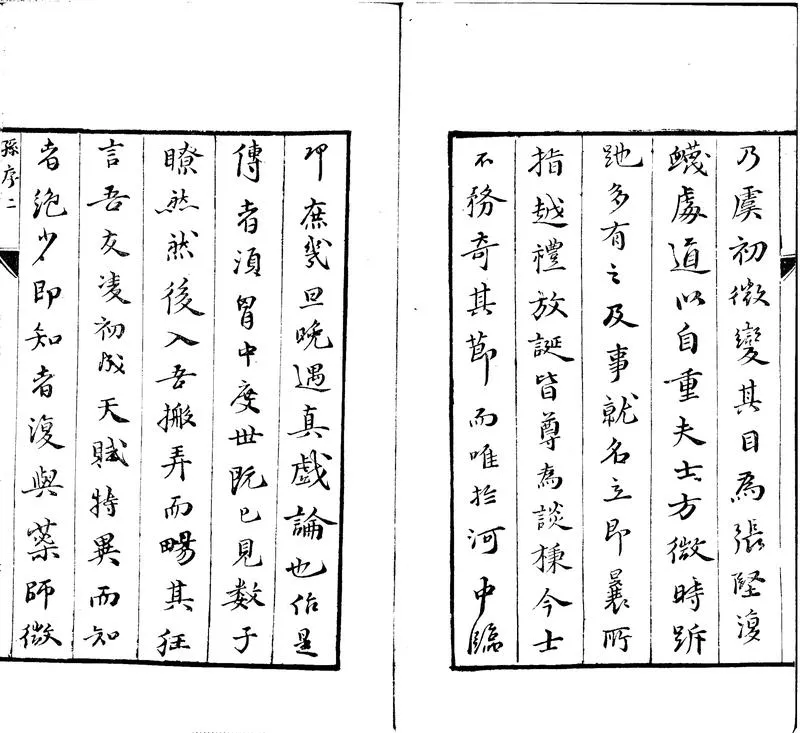 乃虞初微變其目為張堅復
蠛處道以自重夫士方微時跅
跎多有之及事就名立即曩所
指越禮放誕皆尊為談棟今士
不務奇其節而唯於河中臨
卭庶幾旦晩遇真戲論也佁是
傳者湏胷中度世既已見数子
瞭然然後入吾搬弄而暢其狂
言吾友凌初成天賦特異而知
者絶少即知者復與藥師微
孫序二